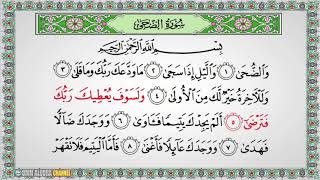 سُورَةُ الضُّحَىٰ
بِسْمِ اللَّهِ الرَّحْمَٰنِ الرَّحِيمِ
وَالضُّحَىٰ ١ وَاللَّيْلِ إِذَا سَجَىٰ ٢ مَا وَدَّعَكَ رَبُّكَ وَمَا قَلَىٰ ٣
وَلَلْآخِرَةُ خَيْرٌ لَّكَ مِنَ الْأُولَىٰ ٤ وَلَسَوْفَ يُعْطِيكَ رَبُّكَ
فَتَرْضَىٰ ٥ أَلَمْ يَجِدْكَ يَتِيمًا فَآوَىٰ ٦ وَوَجَدَكَ ضَالًّا
فَهَدَىٰ ٧ وَوَجَدَكَ عَائِلًا فَأَغْنَىٰ ٨ فَأَمَّا الْيَتِيمَ فَلَا تَقْهَرْ
UMM ALQURA CHANNEL